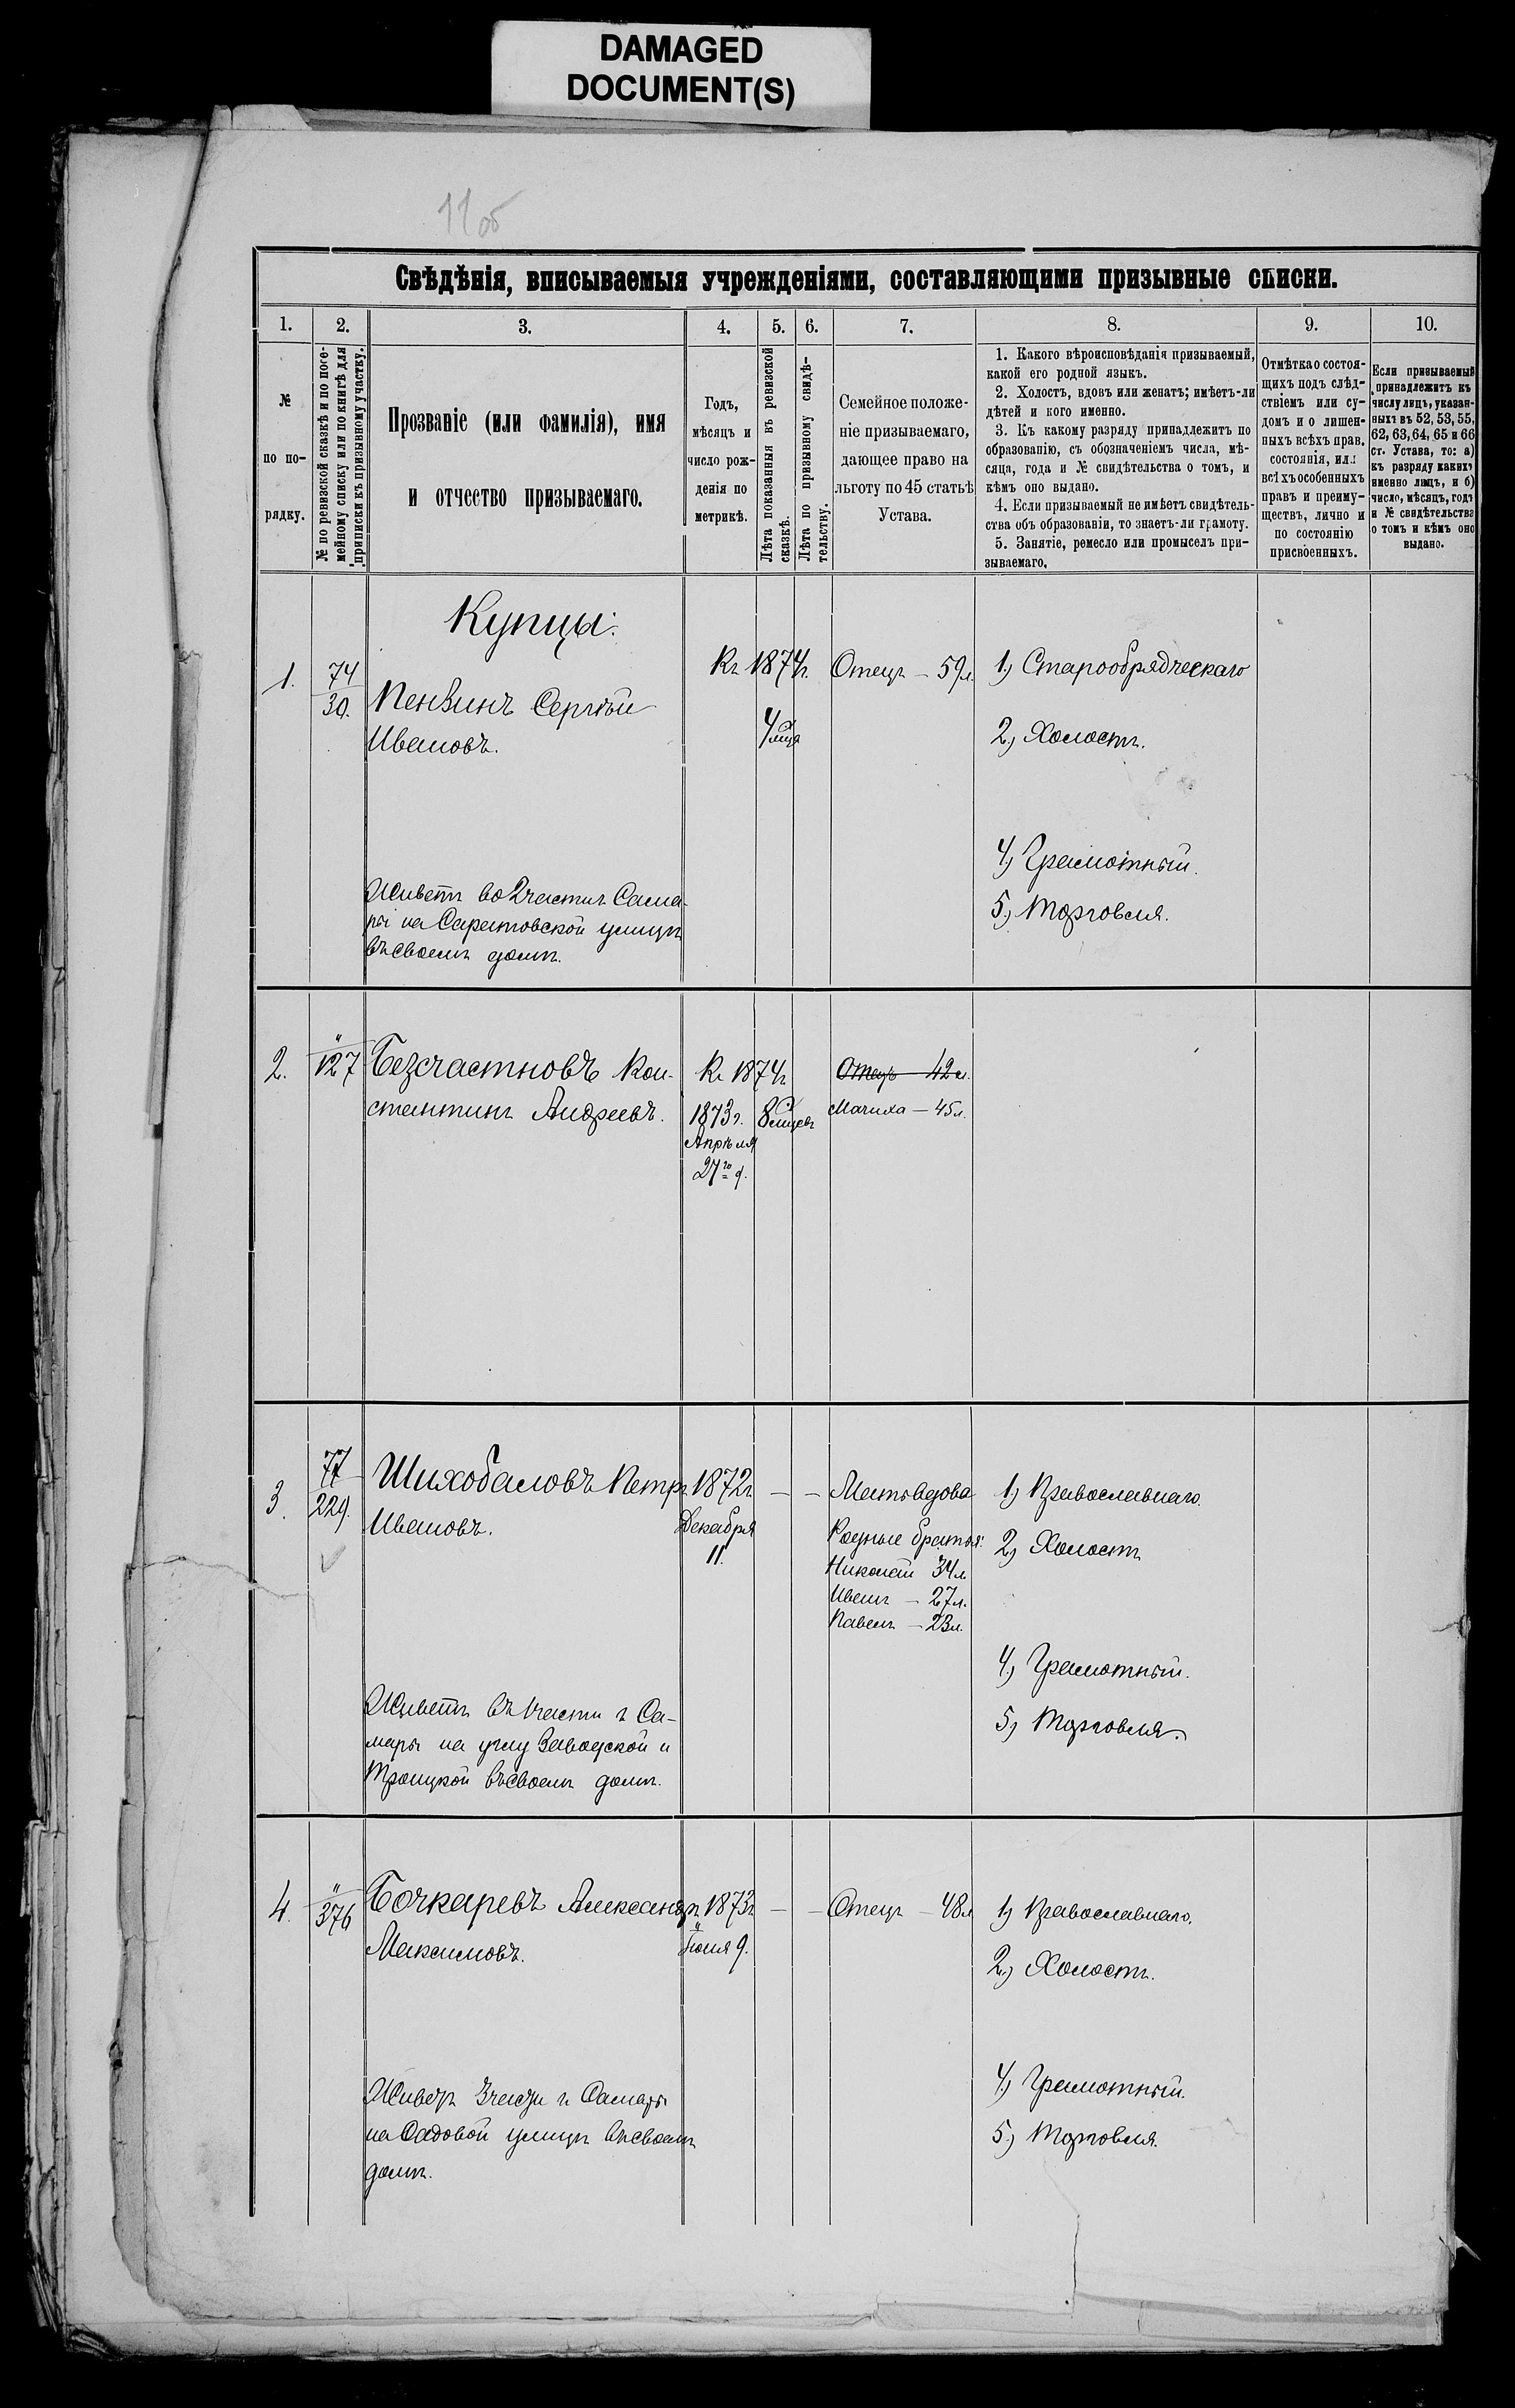 DAMAGED
DOCUMENT(S)
11об
Свѣдѣнія, вписываемыя учрежденіями, составляющими призывные списки.
1.
2.
3.
4.
5.
6.
7.
8.
9.
10.
№
по по-
рядку.
№ по ревизской сказкѣ и по посе-
мейному списку или по книгѣ для
приписки къ призывному участку.
Прозваніе (или фамилія), имя
и отчество призываемаго.
Годъ,
мѣсяцъ и
число рож-
денія по
метрикѣ.
Лѣта показанныя въ ревизской
сказкѣ.
Лѣта по призывному свидѣ-
тельству.
Семейное положе-
ніе призываемаго,
дающее право на
льготу по 45 статьѣ
Устава.
1. Какого вѣроисповѣданія призываемый,
какой его родной языкъ.
2. Холостъ, вдовъ или женатъ; имѣетъ-ли
дѣтей и кого именно.
3. Къ какому разряду принадлежитъ по
образованію, съ обозначеніемъ числа, мѣ-
сяца, года и № свидѣтельства о томъ, и
кѣмъ оно выдано.
4. Если призываемый не имѣетъ свидѣтель-
ства объ образованіи, то знаетъ-ли грамоту.
5. Занятіе, ремесло или промыселъ при-
зываемаго.
Отмѣтка о состоя-
щихъ подъ слѣд-
ствіемъ или су-
домъ и о лишен-
ныхъ всѣхъ прав.
состоянія, или
всѣхъ особенныхъ
правъ и преиму-
ществъ, лично и
по состоянію
присвоенныхъ.
Если призываемый
принадлежитъ къ
числу лицъ, указан-
ныхъ въ 52, 53, 55,
62, 63, 64, 65 и 66
ст. Устава, то: а)
къ разряду какихъ
именно лицъ, и б)
число, мѣсяцъ, годъ
и № свидѣтельства
о томъ и кѣмъ оно
выдано.
Купцы:
1.
74
30.
Пензинъ Сергѣй
Ивановъ.
Къ 1874г.
4 мца
Отецъ – 59л.
1.) Старообрядческаго
2.) Холостъ.
4.) Грамотный.
5.) Торговля.
Живетъ во 2 части г. Сама-
ры на Саратовской улицѣ
въ своемъ домѣ.
2.
"
127
Безсчастновъ Кон-
стантинъ Андреевъ.
Къ 1874г
1873г.
Апрѣля
27го д.
8 мцевъ
Отецъ 42л.
Мачиха – 45л.
3.
77
229.
Шихобаловъ Петръ
Ивановъ.
1872г
Декабря
11.
–
–
Мать вдова
Родные братья:
Николай 34л.
Иванъ – 27л.
Павелъ – 23л.
1.) Православнаго.
2.) Холостъ
4.) Грамотный.
5.) Торговля.
Живетъ въ 1 части г Са-
мары на углу Заводской и
Троицкой въ своемъ домѣ.
4.
"
376
Бочкаревъ Александръ
Максимовъ.
1873г
Іюня 9.
–
–
Отецъ – 48л
1.) Православнаго.
2.) Холостъ.
4.) Грамотный.
5.) Торговля.
Живетъ 3 части г. Самары
на Садовой улицѣ въ своемъ
домѣ.